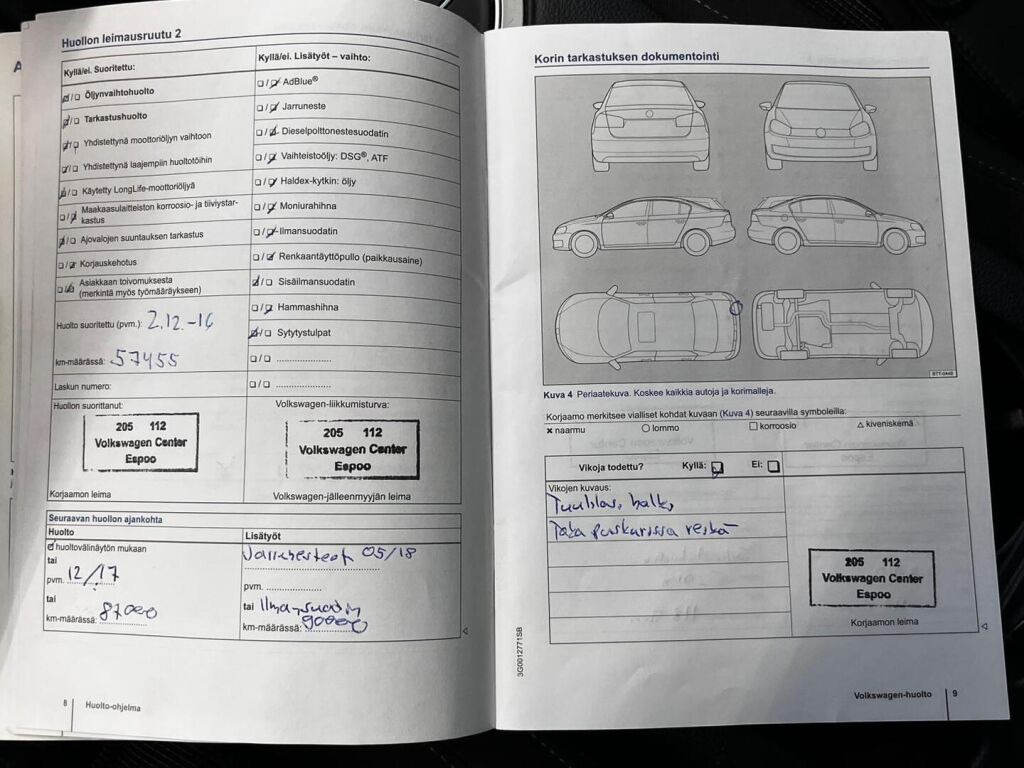 Huollon leimausruutu 2
Kyllä/ei. Suoritettu:
☑/☐ Öljynvaihtohuolto
☑/☐ Tarkastushuolto
☑/☐ Yhdistettynä moottoriöljyn vaihtoon
☑/☐ Yhdistettynä laajempiin huoltotöihin
☑/☐ Käytetty LongLife-moottoriöljyä
☐/☑ Maakaasulaitteiston korroosio- ja tiiviystar-
kastus
☑/☐ Ajovalojen suuntauksen tarkastus
☐/☑ Korjauskehotus
☐/☑ Asiakkaan toivomuksesta
(merkintä myös työmääräykseen)
Huolto suoritettu (pvm.): 2.12.-16
km-määrässä: 57455
Laskun numero:
Huollon suorittanut:
205 112
Volkswagen Center
Espoo
Korjaamon leima
Kyllä/ei. Lisätyöt – vaihto:
☐/☑ AdBlue®
☐/☑ Jarruneste
☐/☑ Dieselpolttonestesuodatin
☐/☑ Vaihteistoöljy: DSG®, ATF
☐/☑ Haldex-kytkin: öljy
☐/☑ Moniurahihna
☐/☑ Ilmansuodatin
☐/☑ Renkaantäyttöpullo (paikkausaine)
☑/☐ Sisäilmansuodatin
☐/☑ Hammashihna
☑/☐ Sytytystulpat
☐/☐ ....................
☐/☐ ....................
Volkswagen-liikkumisturva:
205 112
Volkswagen Center
Espoo
Volkswagen-jälleenmyyjän leima
Seuraavan huollon ajankohta
Huolto
☑ huoltovälinäytön mukaan
tai
pvm. 12/17
tai
km-määrässä: 87000
Lisätyöt
05/18
pvm. ....................
tai
km-määrässä: 90000
8 Huolto-ohjelma
Korin tarkastuksen dokumentointi
BTT-0448
Kuva 4 Periaatekuva. Koskee kaikkia autoja ja korimalleja.
Korjaamo merkitsee vialliset kohdat kuvaan (Kuva 4) seuraavilla symboleilla:
✖ naarmu ○ lommo □ korroosio △ kiveniskemä
Vikoja todettu? Kyllä: ☑ Ei: ☐
Vikojen kuvaus:
Taka puskurissa reikä
205 112
Volkswagen Center
Espoo
Korjaamon leima
3G0012771SB
Volkswagen-huolto 9